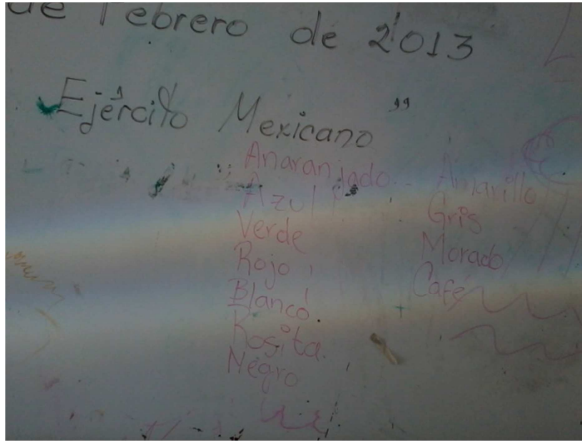 de Febrero de 2013
Ejército Mexicano"
Anaranjado.
Azul
Verde
Rojo
Blanco.
Rosita.
Negro
Amarillo
Gris
Morado
Café